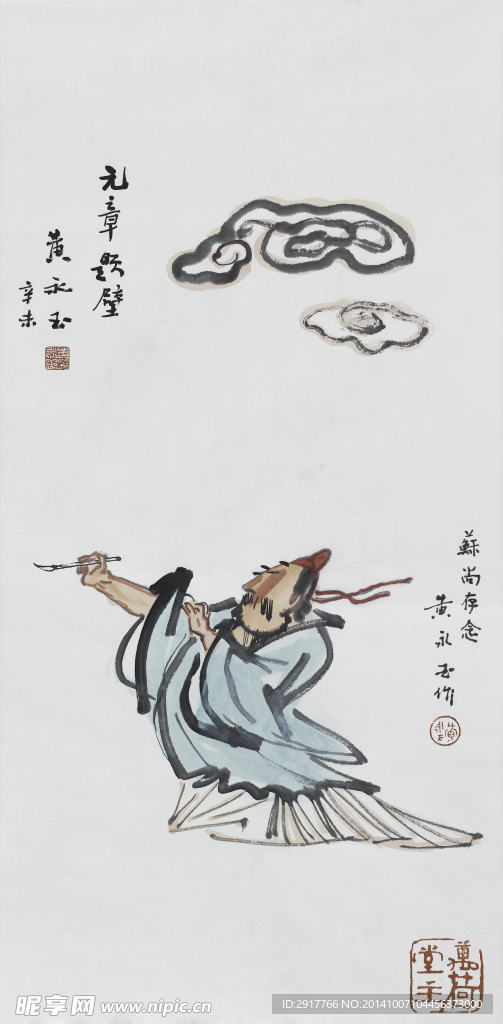 元章题壁
黄永玉
辛未
蘇尚存念
黄永玉作
萬荷
堂主
昵享网 www.nipic.cn
ID:2917766 NO:20141007104456373000